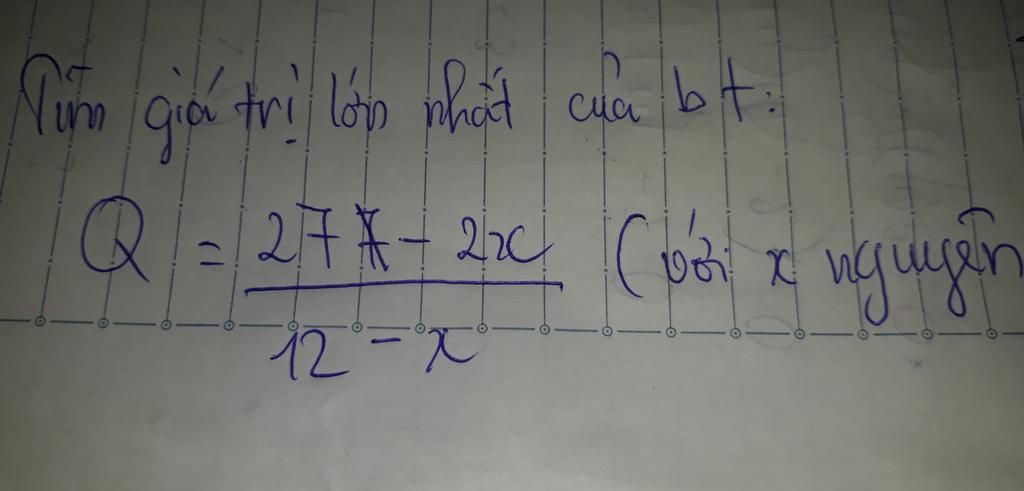 Tìm giá trị lớn nhất của bt:
Q = \frac{27 - 2x}{12 - x} (với x nguyên